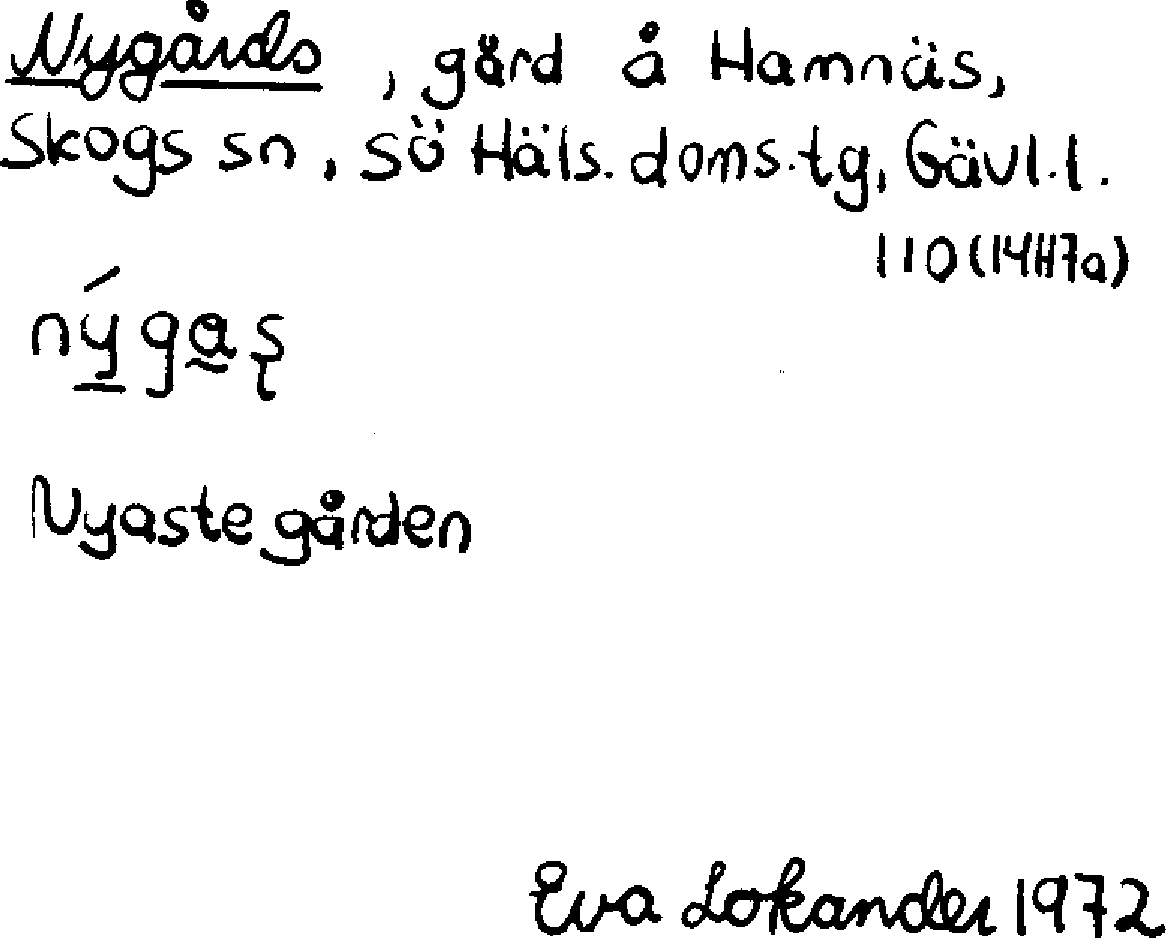 Nygårds, gård å Hamnäs,
Skogs sn, sö Häls. doms.tg, Gävl.l.
110 (14H7a)
nýgas̨
Nyaste gården
Eva Lokander 1972